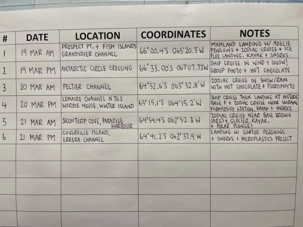 # DATE LOCATION COORDINATES NOTES
1 19 MAR AM PROSPECT PT. + FISH ISLANDS
GRANDIDIER CHANNEL
66°00.4'S 065°20.3'W
MAINLAND LANDING W/ ADELIE
PENGUINS + ZODIAC CRUISE + ICE
FLOE LANDING, KAYAK + SNORKEL
2 19 MAR PM ANTARCTIC CIRCLE CROSSING 66°33.00'S 067°07.75'W
SHIP CRUISE IN WIND + SNOW!
GROUP PHOTO + HOT CHOCOLATE
3 20 MAR AM PELTIER CHANNEL 64°52.6'S 063°32.8'W
ZODIAC CRUISE IN SNOW/RAIN
WITH HOT CHOCOLATE +
4 20 MAR PM LEMAIRE CHANNEL N TO S
WORDIE HOUSE, WINTER ISLAND
65°15.1'S 064°15.2'W
SHIP CRUISE THEN LANDING AT HISTORIC
BASE F + ZODIAC CRUISE NEAR UKRAINE
STATION, KAYAK + SNORKEL
5 21 MAR AM SKONTORP COVE, PARADISE
HARBOUR
64°54.4'S 062°52.3'W
ZODIAC CRUISE NEAR BASE BROWN
+ GLACIER, KAYAK,
+ POLAR PLUNGE!
6 21 MAR PM CUVERVILLE ISLAND,
ERRERA CHANNEL
64°41.2'S 062°37.9'W
LANDING W/ GENTOO PENGUINS
+ SNORKEL + MICROPLASTICS PROJECT